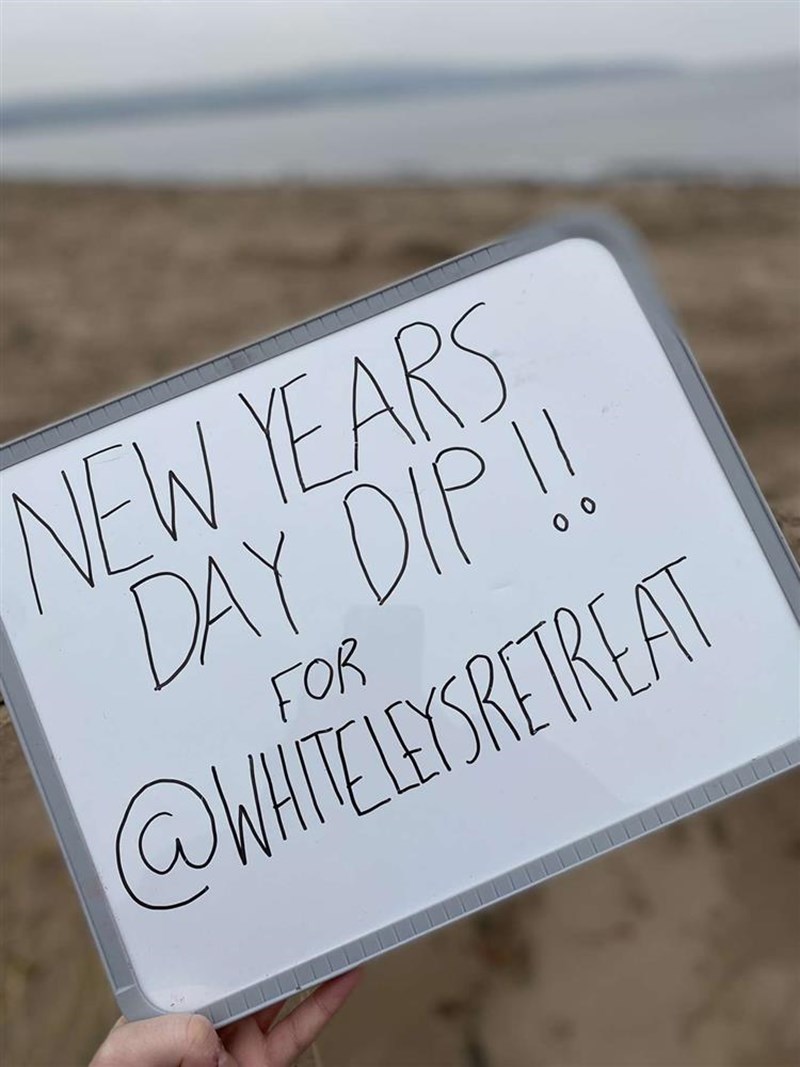 NEW YEARS
DAY DIP !!
FOR
@WHITELEYSRETREAT